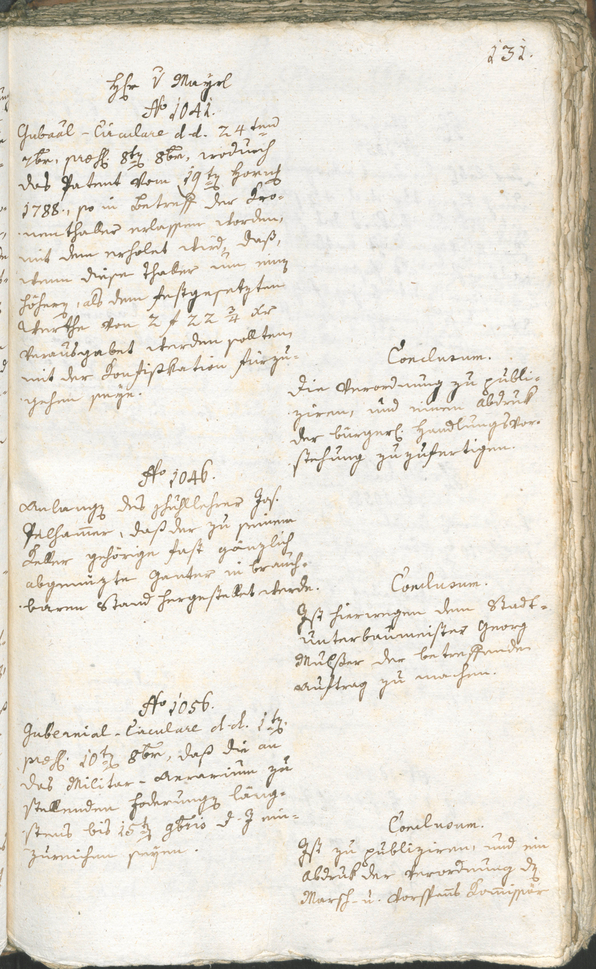 131.
Hr v Mayrl
No 1041.
Gubaal-Circulare d.d. 24ten
7br, præs. 8ty 8br, wodurch
das Patent vom 19ty Horng
1788, so in Betreff der Kro-
nenthaler erlassen worden,
mit dem erholet wird, daß,
wenn diese Thaler um einen
höhern, als dem festgesetzten
Werthe von 2 f 22 3/4 kr
verausgabet werden sollten
mit der Konfiskation fürzu-
gehen seye.
Conclusum.
Die Verordnung zu publi-
ziren, und einen Abdruk
der bürgerl. Handlungsvor-
stehung zuzufertigen.
No 1046.
Anlangen des Schullehrer Jos.
Pelhamer, daß der zu seinem
Keller gehörige fast gänzlich
abgenüzte Ganter in brauch-
baren Stand hergestellet werde.
Conclusum.
Ist hierwegen dem Stadt-
unterbaumeister Georg
Mulser der betreffende
Auftrag zu machen.
No 1056.
Gubernial-Circulare d.d. 1ty
præs. 10ty 8br, daß die an
das Militar-Aerarium zu
stellenden Foderungen läng-
stens bis 15ty 9brio d. J ein-
zureichen seyen.
Conclusum.
Ist zu publiziren, und ein
Abdruk der Verordnung den
Marsch- u. Vorspanns Kommissär